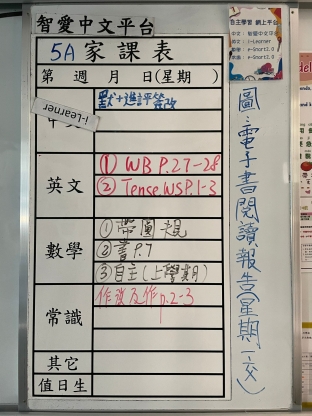 智愛中文平台
5A 家課表
第 週 月 日(星期 )
i-Learner
默+進評簽改
英文
① WB P.27-28
② Tense WS P.1-3
數學
① 帶圓規
② 書 P.7
③ 自主(上學期)
常識
作改及作 p.2-3
其它
值日生
圖:電子書閱讀報告(星期一交)
自主學習 網上平台
中文: 智愛中文平台
英文: i-Learner